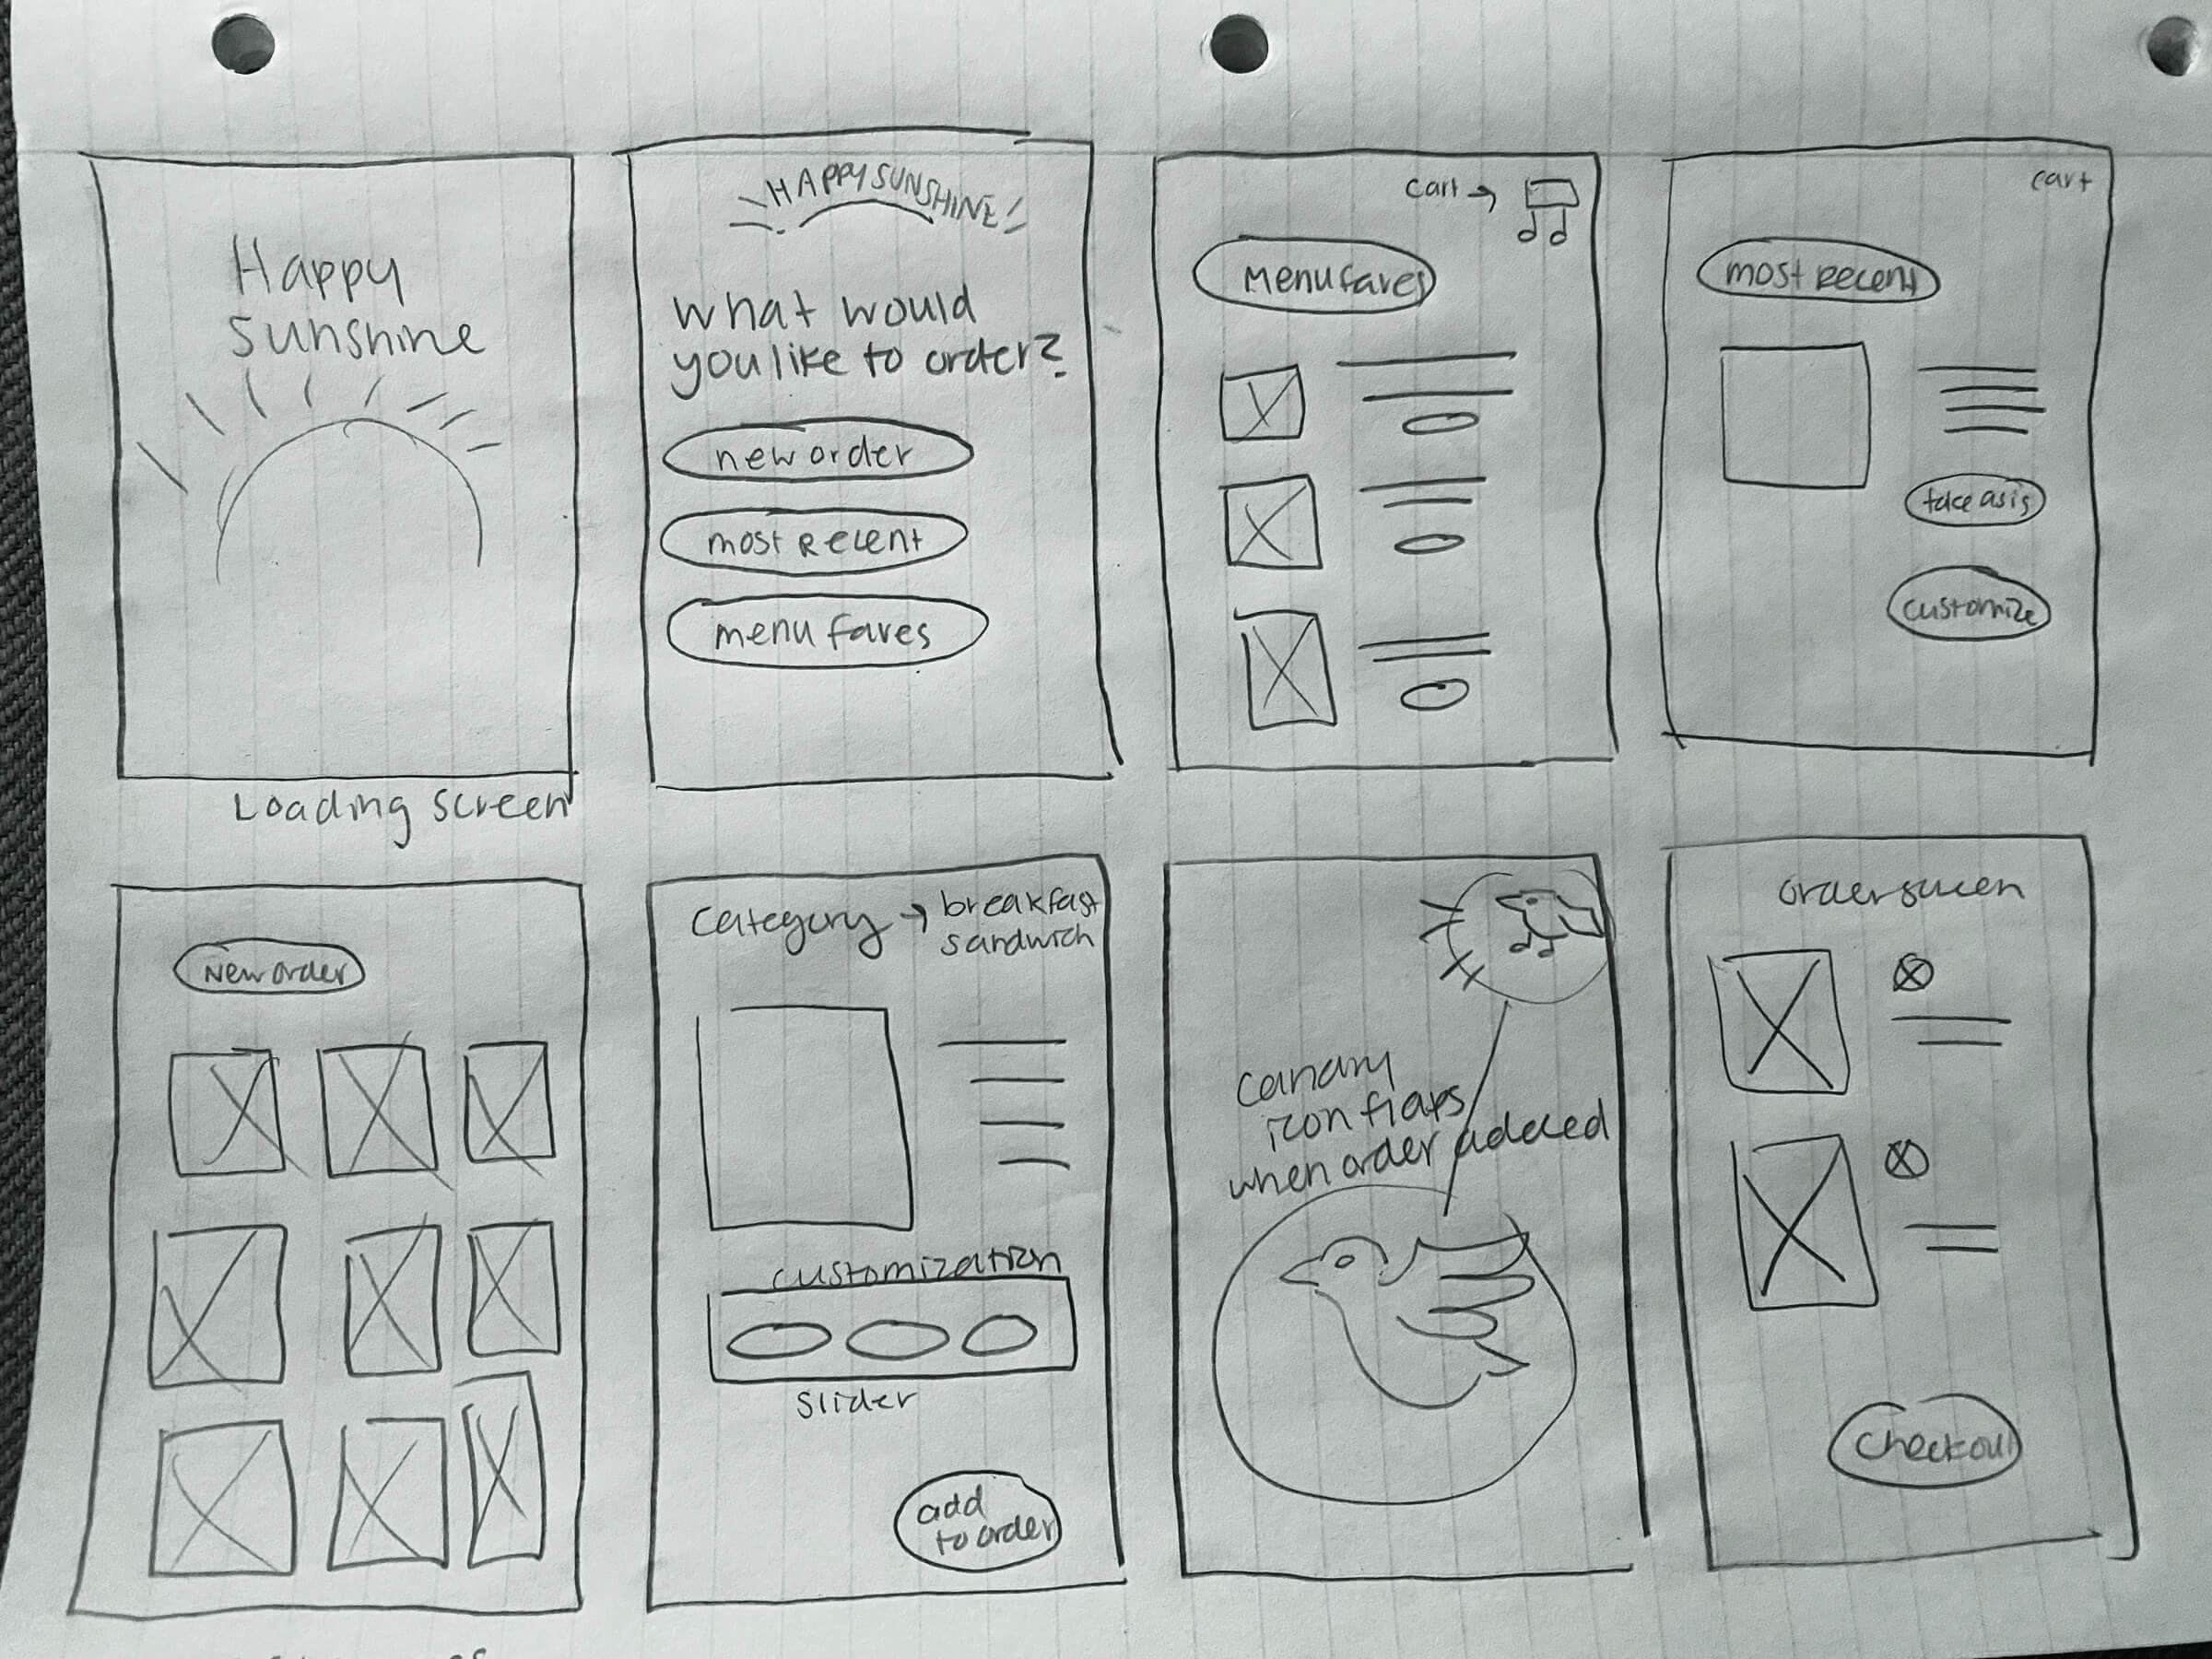 Happy
sunshine
Loading screen
HAPPY SUNSHINE
what would
you like to order?
new order
most recent
menu faves
cart →
Menu faves
cart
most recent
take as is
customize
New order
category → breakfast
sandwich
customization
slider
add
to order
canary
icon flaps
when order added
order screen
checkout